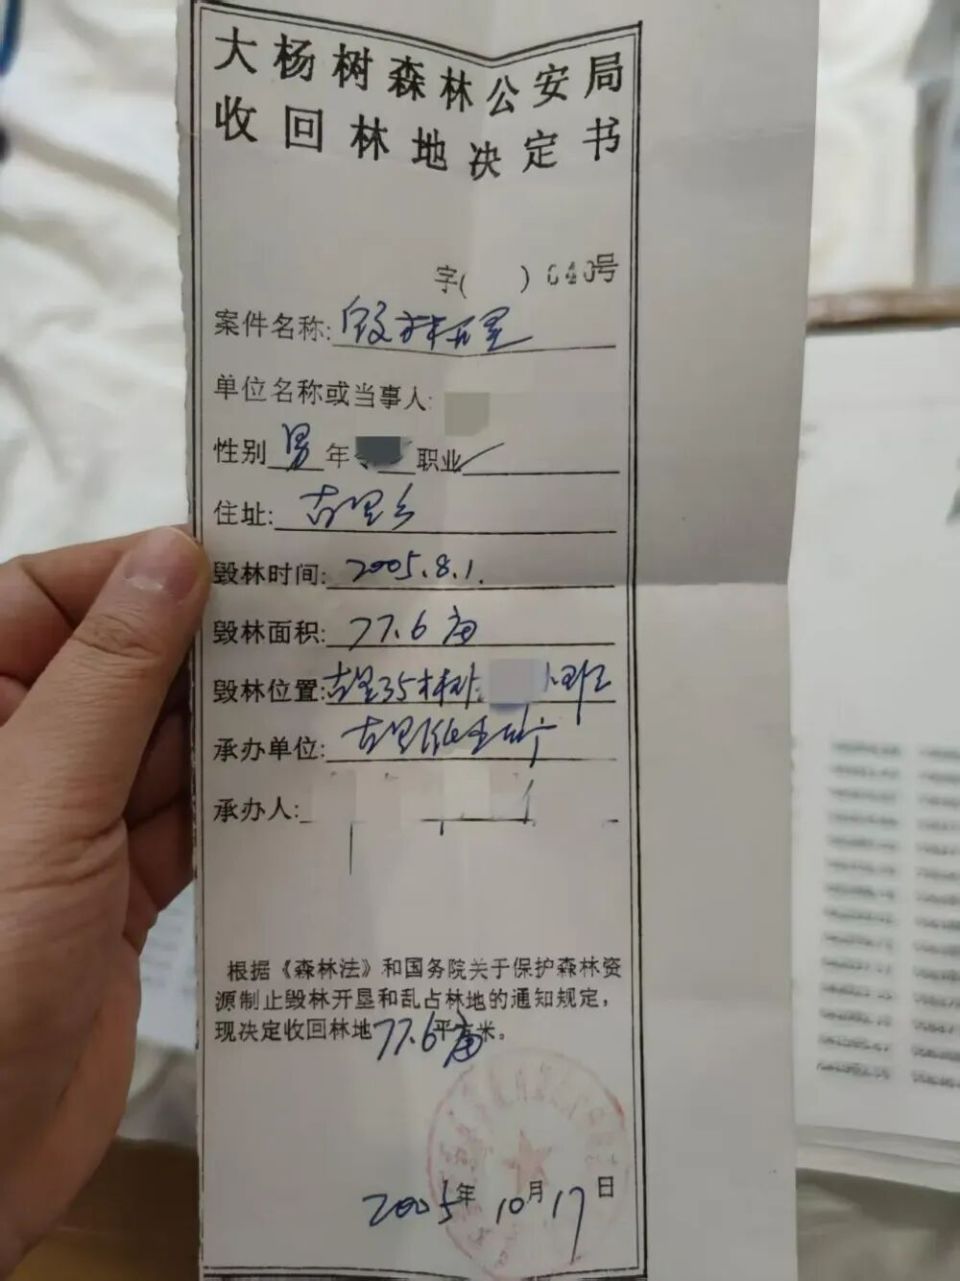 大杨树森林公安局
收回林地决定书
字( ) 040号
案件名称: 毁林开垦
单位名称或当事人:
性别 男 年 职业
住址: 古里乡
毁林时间: 2005.8.1.
毁林面积: 77.6亩
毁林位置: 古里35林班 小班
承办单位: 古里派出所
承办人:
根据《森林法》和国务院关于保护森林资
源制止毁林开垦和乱占林地的通知规定,
现决定收回林地77.6亩平方米。
2005年10月17日